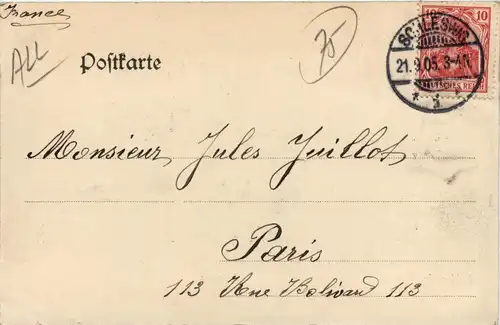 France
ALL
75
10
SCHLESWIG
21.9.05.3-4N
* d *
DEUTSCHES REICH
Postkarte
Monsieur Jules Juillot
Paris
113 Rue Bolivard 113